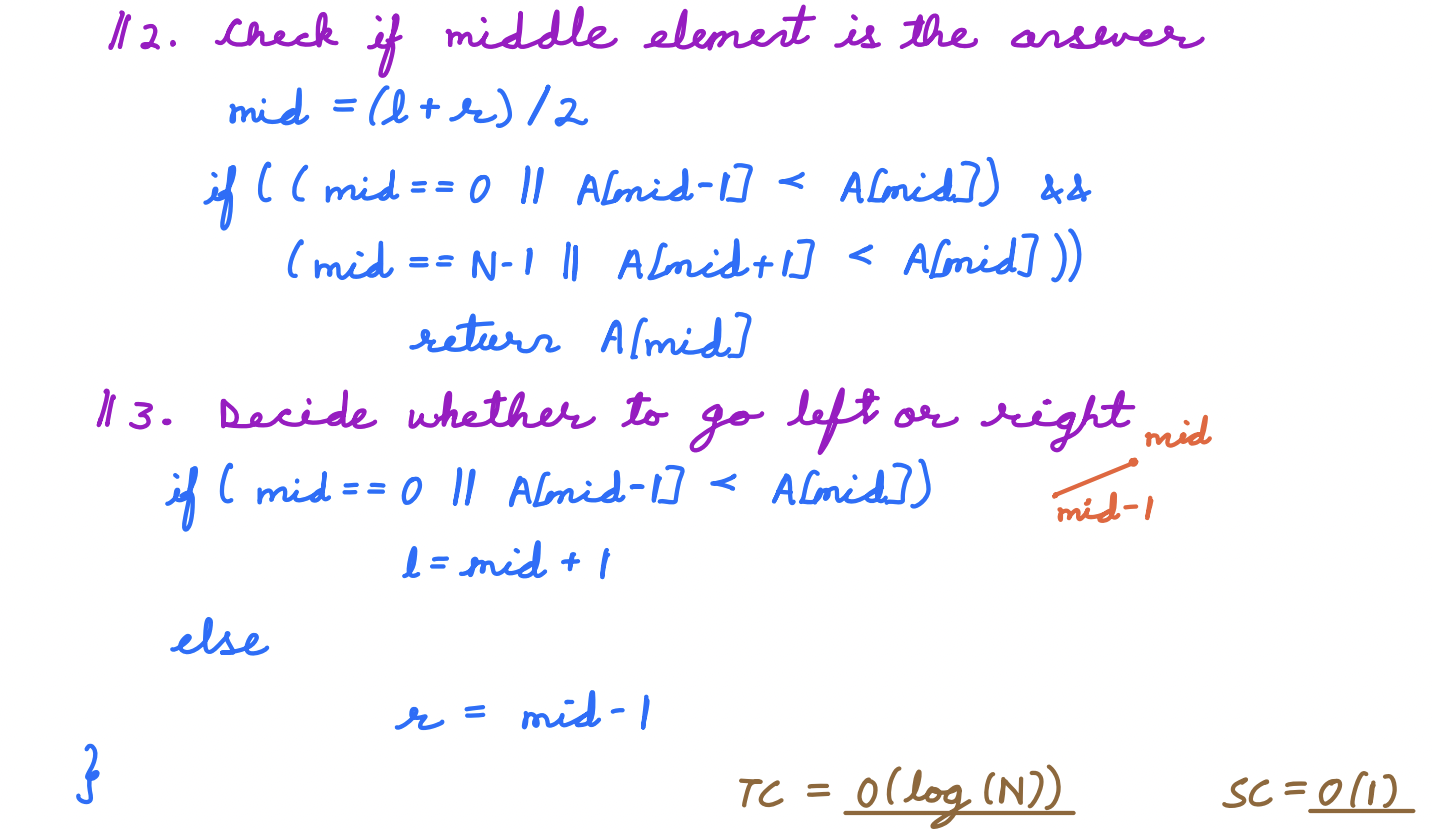 // 2. Check if middle element is the answer
mid = (l + r) / 2
if ( ( mid == 0 || A[mid-1] < A[mid]) &&
( mid == N-1 || A[mid+1] < A[mid] ))
return A[mid]
// 3. Decide whether to go left or right
mid
if ( mid == 0 || A[mid-1] < A[mid])
mid-1
l = mid + 1
else
r = mid - 1
}
TC = O(log(N)) SC = O(1)